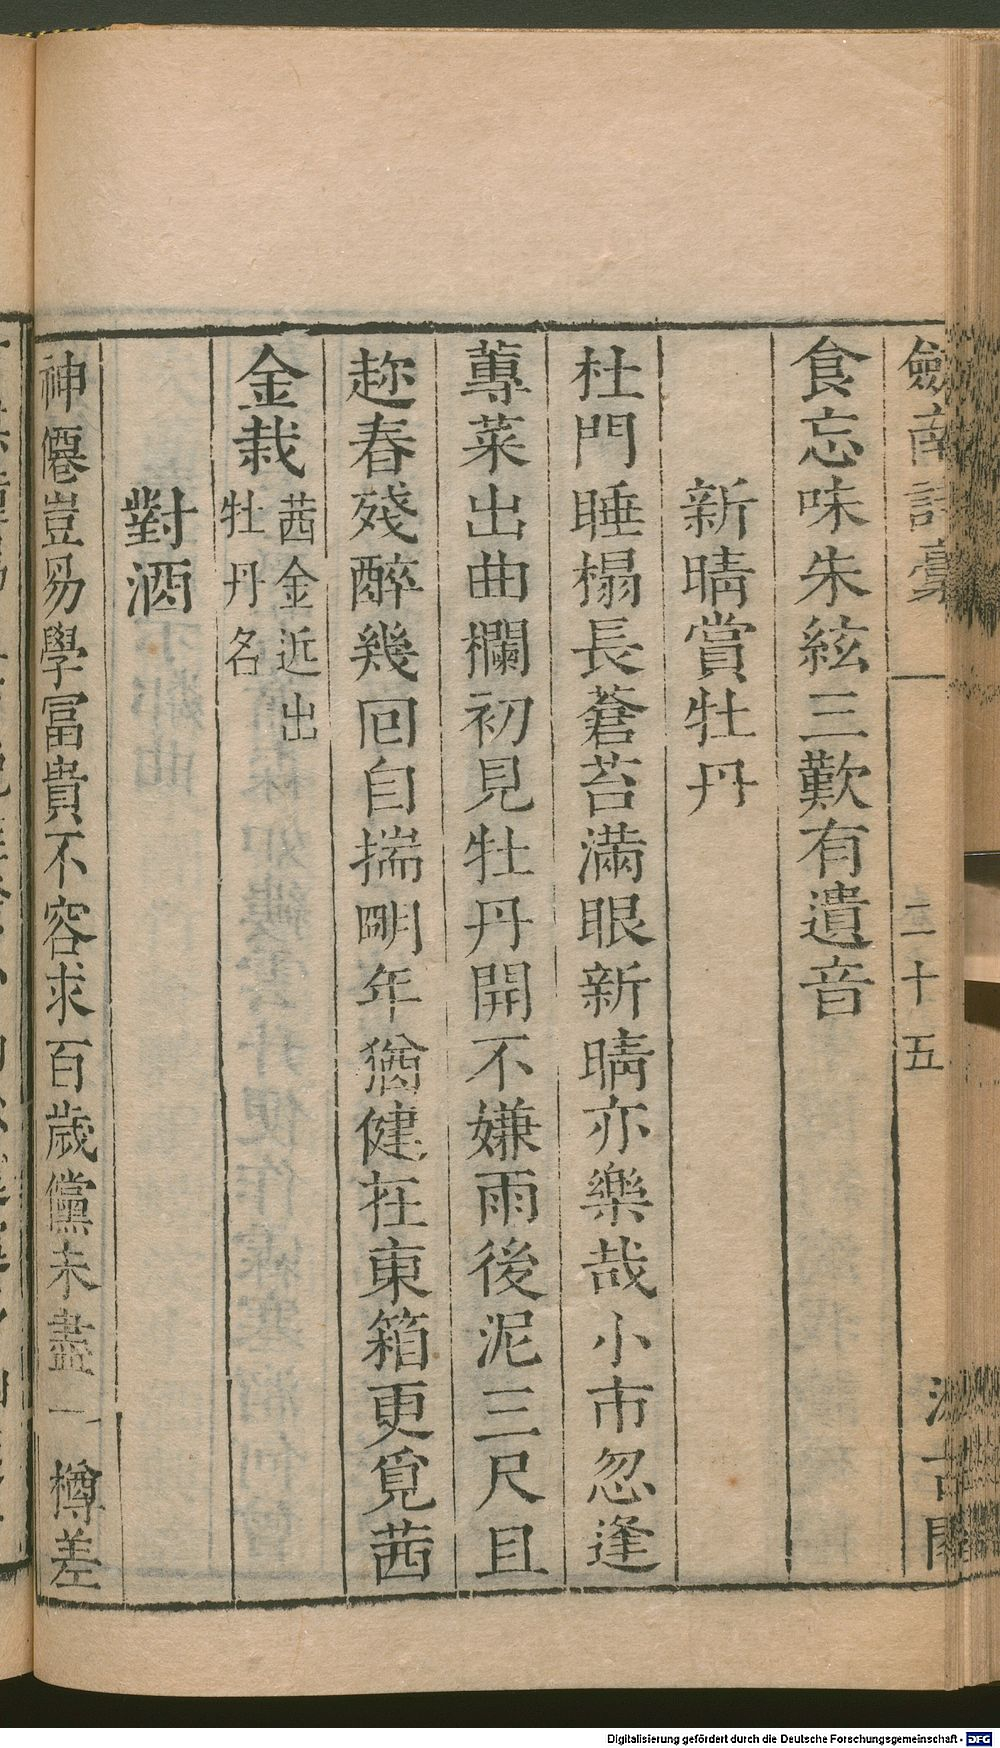 劒南詩稾 二十五 汲古閣
食忘味朱絃三歎有遺音
新晴賞牡丹
杜門睡榻長蒼苔滿眼新晴亦樂哉小市忽逢
蓴菜出曲欄初見牡丹開不嫌雨後泥三尺且
趂春殘醉幾回自揣明年猶健在東箱更覓茜
金栽茜金近出
牡丹名
對酒
神僊豈易學冨貴不容求百歲儻未盡一樽差
Digitalisierung gefördert durch die Deutsche Forschungsgemeinschaft - DFG